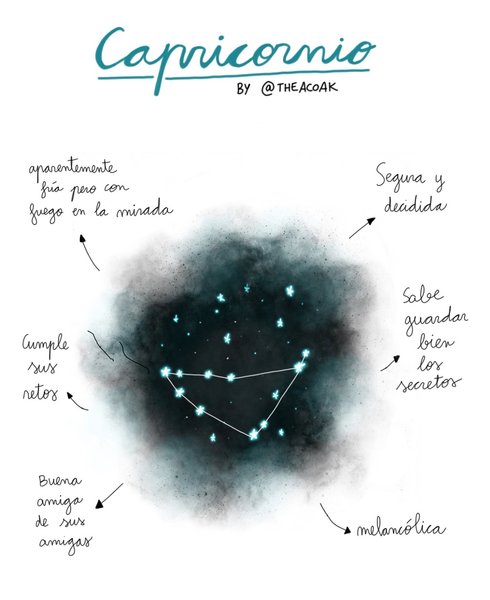 Capricornio
BY @THEACOAK
aparentemente
fría pero con
fuego en la mirada
Segura y
decidida
Cumple
sus
retos
Sabe
guardar
bien
los
secretos
Buena
amiga
de sus
amigas
melancólica